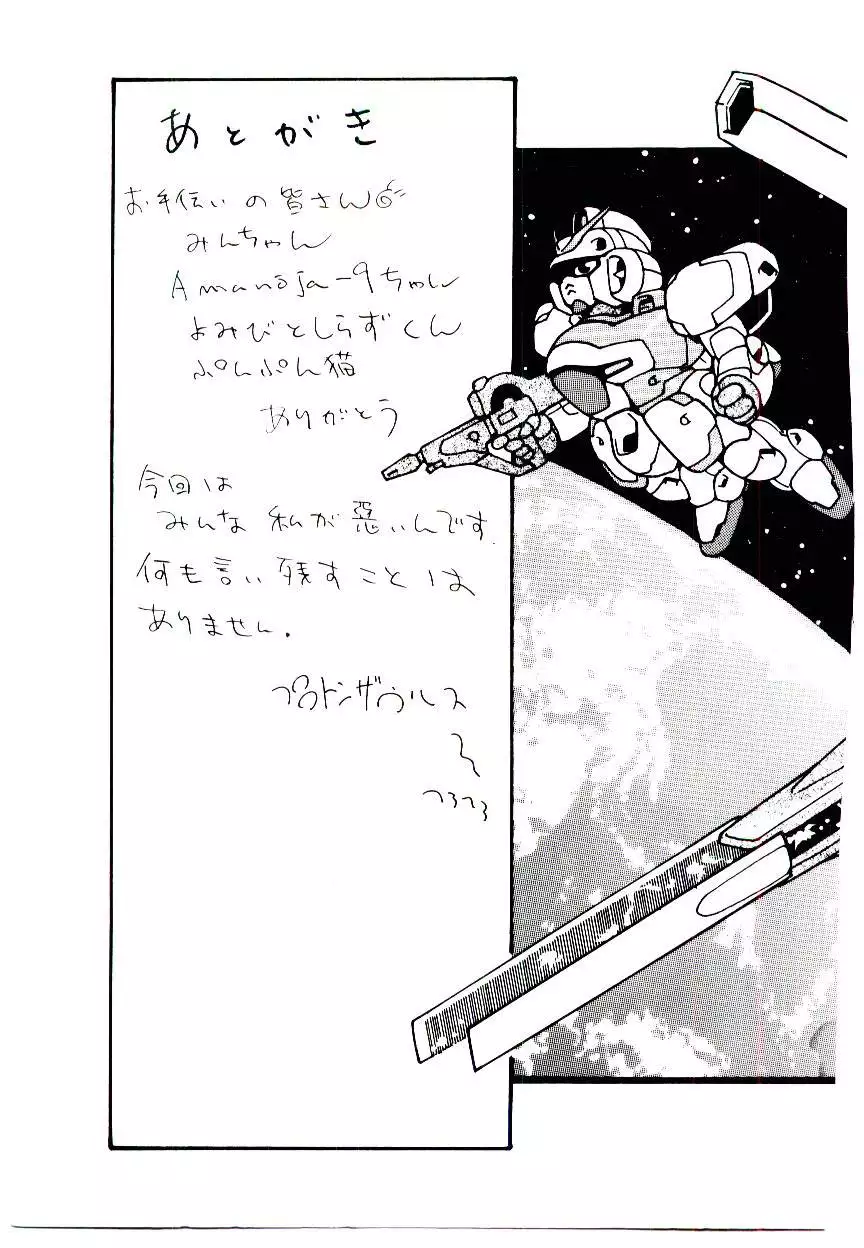 あとがき
お手伝いの皆さん
みんちゃん
Amanoja-9ちゃん
よみびとしらずくん
ぷんぷん猫
ありがとう
今回は
みんな私が悪いんです.
何も言い残すことは
ありません.